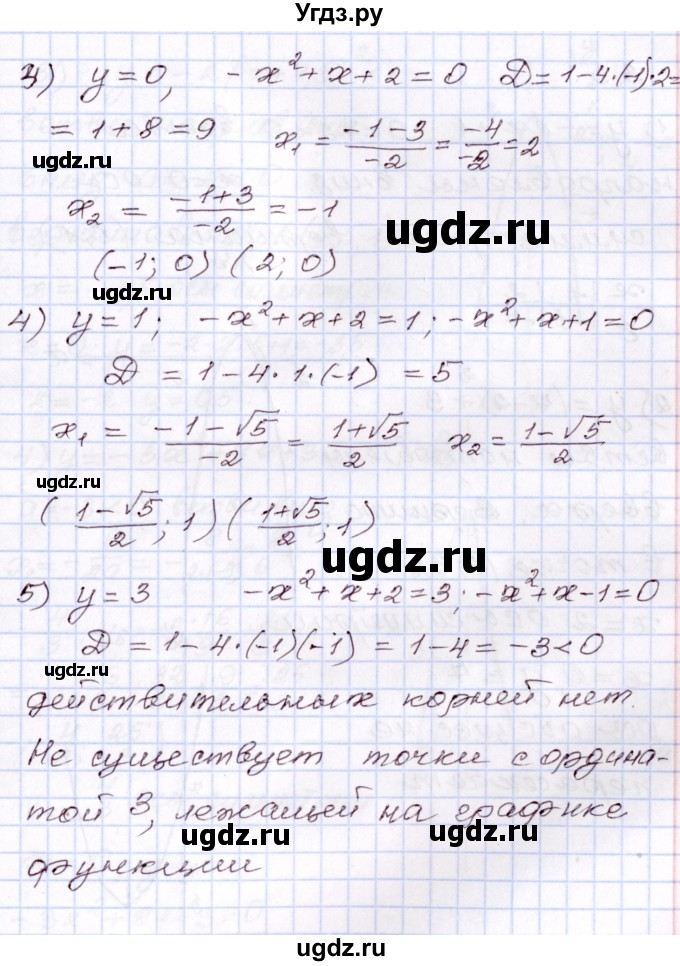 Угдз.ру
3) y = 0, -x² + x + 2 = 0 Д = 1 - 4·(-1)·2 =
= 1 + 8 = 9 x₁ = (-1-3)/(-2) = (-4)/(-2) = 2
ugdz.ru
x₂ = (-1+3)/(-2) = -1
ugdz.ru
(-1; 0) (2; 0)
ugdz.ru
4) y = 1; -x² + x + 2 = 1; -x² + x + 1 = 0
Д = 1 - 4·1·(-1) = 5
x₁ = (-1-√5)/(-2) = (1+√5)/2 x₂ = (1-√5)/2
ugdz.ru
((1-√5)/2; 1) ((1+√5)/2; 1)
ugdz.ru
5) y = 3 -x² + x + 2 = 3; -x² + x - 1 = 0
Д = 1 - 4·(-1)(-1) = 1 - 4 = -3 < 0
ugdz.ru
действительных корней нет.
Не существует точки с ордина-
той 3, лежащей на графике
ugdz.ru ugdz.ru
функции
ugdz.ru